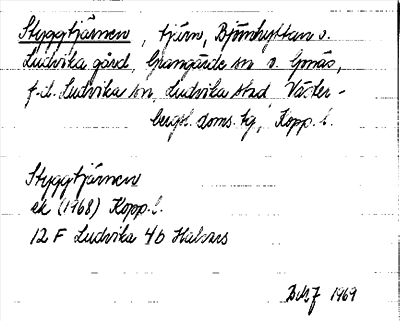 Styggtjärnen, tjärn, Björnhyttan o.
Ludvika gård, Grangärde sn o. Gonäs,
f.d. Ludvika sn, Ludvika stad, Väster-
bergsl. doms. tg, Kopp. l.
Styggtjärnen
ek (1968) Kopp. l.
12 F Ludvika 4b
1969